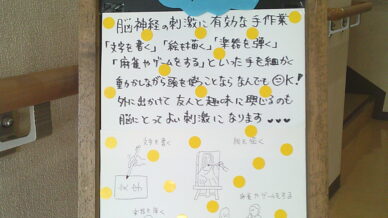 脳神経の刺激に有効な手作業
「文字を書く」「絵を描く」「楽器を弾く」
「麻雀やゲームをする」といった手を細かく
動かしながら頭を使うことならなんでもOK!
外に出かけて友人と趣味に興じるのも
脳にとってよい刺激になります
文字を書く
絵を描く
麻雀やゲームをする
楽器を弾く